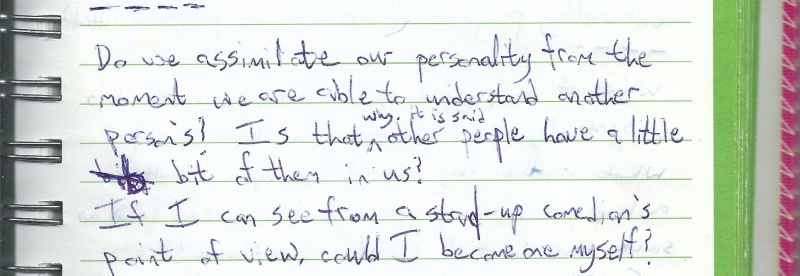 Do we assimilate our personality from the
moment we are able to understand another
person's? Is that why it is said other people have a little
bit of them in us?
If I can see from a stand-up comedian's
point of view, could I become one myself?